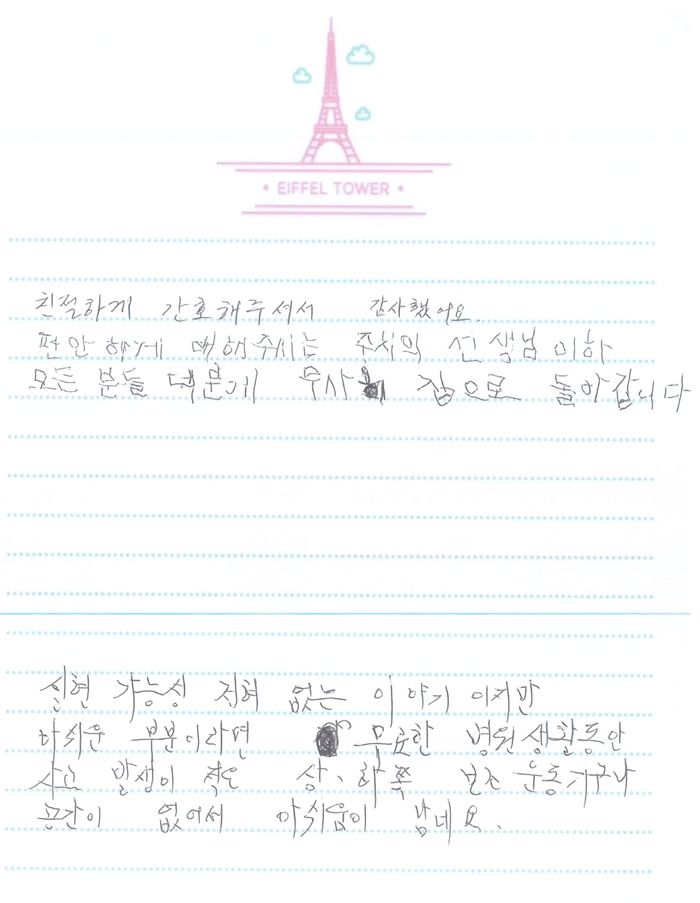 • EIFFEL TOWER •
친절하게 간호해주셔서 감사했어요.
편안하게 대해주시는 주치의 선생님 이하
모든 분들 덕분에 무사히 집으로 돌아갑니다
실현 가능성 전혀 없는 이야기 이지만
아쉬운 부분이라면 무료한 병원생활동안
사고 발생이 적은 상、하쪽 보조 운동기구나
공간이 없어서 아쉬움이 남네요.